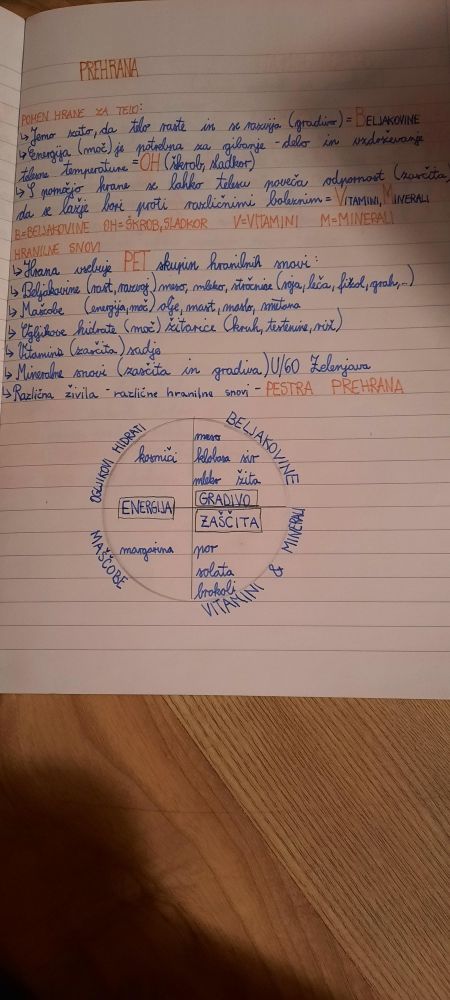 PREHRANA
POMEN HRANE ZA TELO:
↳ Jemo zato, da telo raste in se razvija (gradivo) = BELJAKOVINE
↳ Energija (moč) je potrebna za gibanje - delo in vzdrževanje
telesne temperature = OH (škrob, sladkor)
↳ S pomočjo hrane se lahko telesu poveča odpornost (zaščita,
da se lažje bori proti različnimi boleznim = VITAMINI, MINERALI
B=BELJAKOVINE OH=ŠKROB, SLADKOR V=VITAMINI M=MINERALI
HRANILNE SNOVI
↳ Hrana vsebuje PET skupin hranilnih snovi:
↳ Beljakovine (rast, razvoj) meso, mleko, stročnice (soja, leča, fižol, grah,...)
↳ Maščobe (energija, moč) olje, mast, maslo, smetana
↳ Ogljikove hidrate (moč) žitarice (kruh, testenine, riž)
↳ Vitamine (zaščita) sadje
↳ Mineralne snovi (zaščita in gradiva) U/60 Zelenjava
↳ Različna živila - različne hranilne snovi - PESTRA PREHRANA
OGLJIKOVI HIDRATI
BELJAKOVINE
meso
kosmiči klobasa sir
mleko žita
ENERGIJA GRADIVO
ZAŠČITA
margarina por
solata
brokoli
MAŠČOBE
VITAMINI & MINERALI